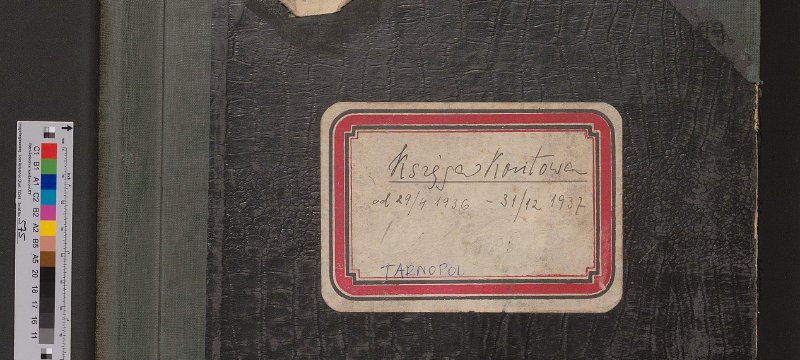 Księga Kontowa
od 29/4 1936 - 31/12 1937
TARNOPOL
C1 B1 A1 C2 B2 A2 B5 A5 20 18 17 16 11
575